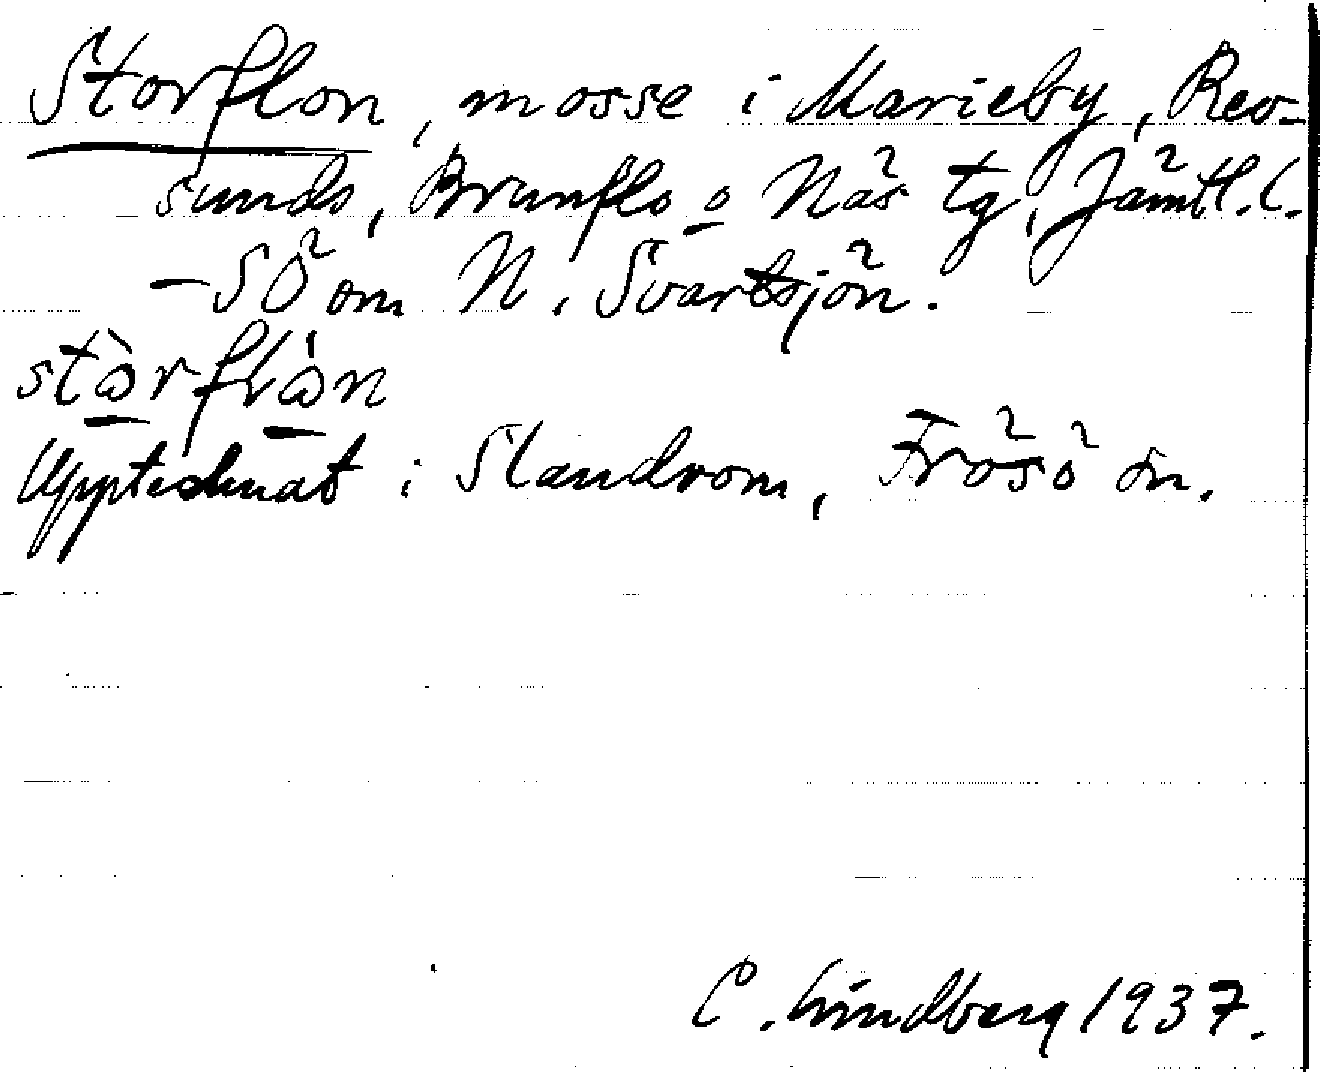 Storflon, mosse i Marieby, Rev-
sunds, Brunflo o Näs tg, Jämtl. l.
– SÖ om N. Svartsjön.
Upptecknat i Slandrom, Frösö sn.
C. Lindberg 1937.